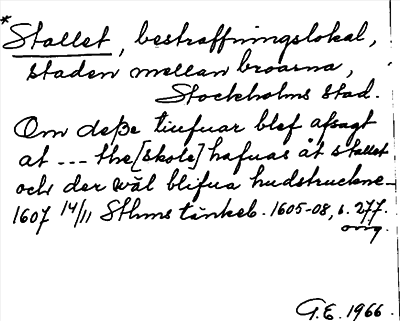 *
Stallet, bestraffningslokal,
staden mellan broarna,
Stockholms stad.
Om deße tiufuar blef afsagt
at --- the [skole] hafuas åt stallet
och der wäl blifua hudstruckne
1607 14/11 Sthms tänkeb. 1605-08, s. 277.
orig.
G.E. 1966.